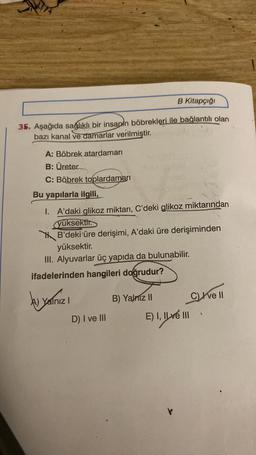 B Kitapçığı
35. Aşağıda sağlıklı bir insanın böbrekleri ile bağlantılı olan
bazı kanal ve damarlar verilmiştir.
A: Böbrek atardamarı
B: Üreter
C: Böbrek toplardamarı
Bu yapılarla ilgili,
I. A'daki glikoz miktarı, C'deki glikoz miktarından
yüksektir.
II. B'deki üre derişimi, A'daki üre derişiminden
yüksektir.
III. Alyuvarlar üç yapıda da bulunabilir.
ifadelerinden hangileri doğrudur?
A) Yalnız I B) Yalnız II C) I ve II
D) I ve III E) I, II ve III